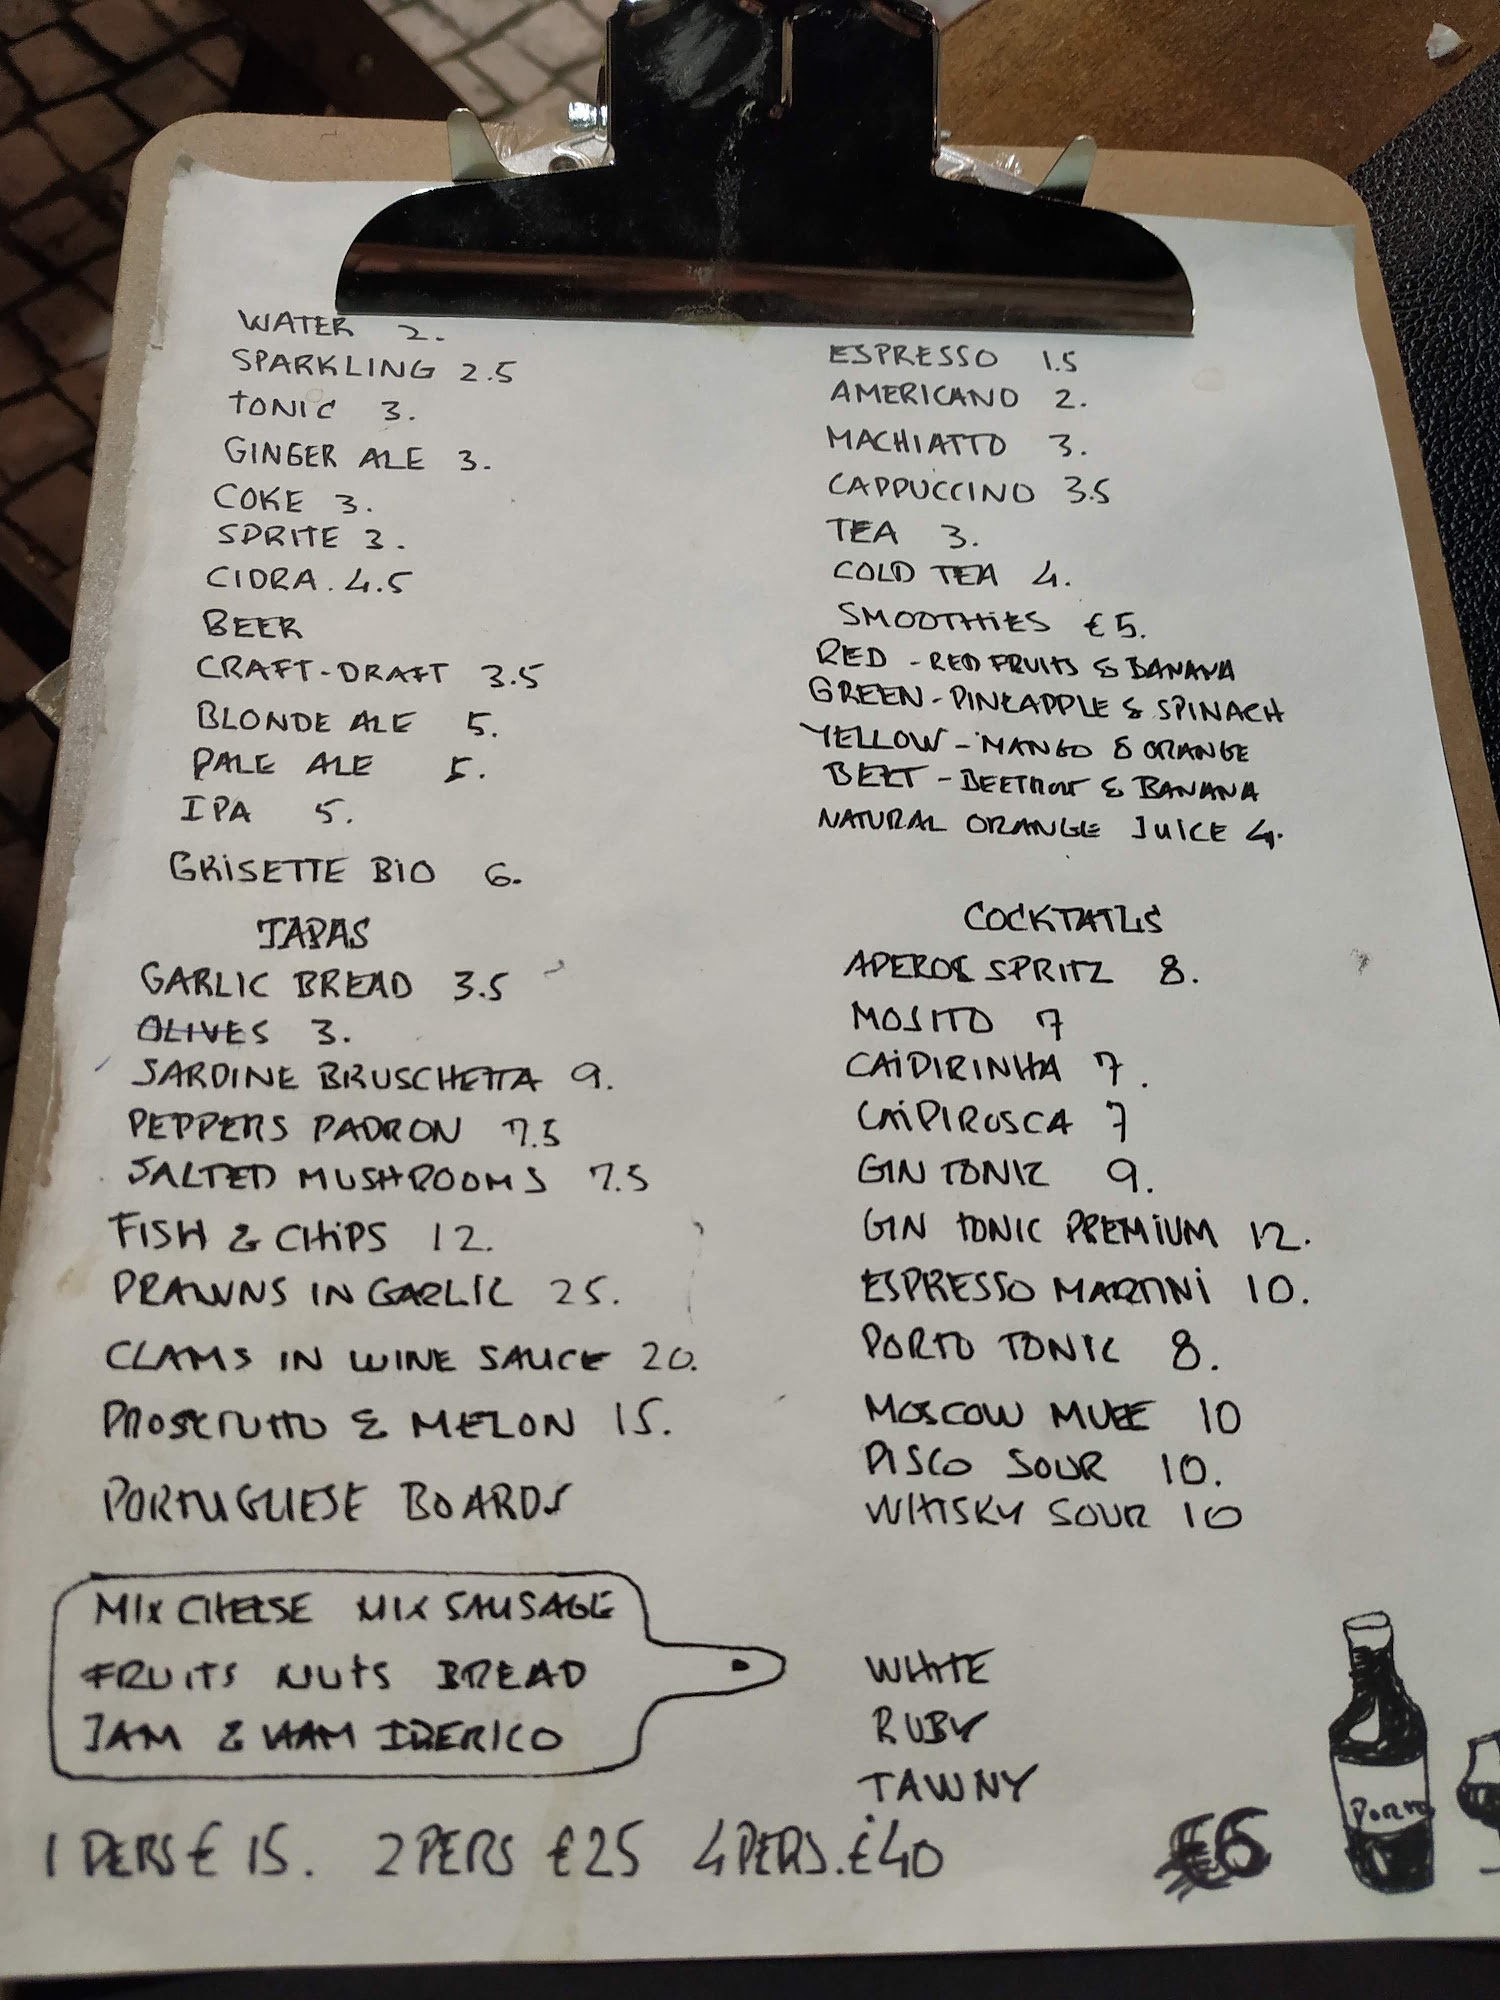 WATER 2.
SPARKLING 2.5
TONIC 3.
GINGER ALE 3.
COKE 3.
SPRITE 3.
CIDRA. 4.5
BEER
CRAFT-DRAFT 3.5
BLONDE ALE 5.
PALE ALE 5.
IPA 5.
GRISETTE BIO 6.
TAPAS
GARLIC BREAD 3.5
OLIVES 3.
SARDINE BRUSCHETTA 9.
PEPPERS PADRON 7.5
SALTED MUSHROOMS 7.5
FISH & CHIPS 12.
PRAWNS IN GARLIC 25.
CLAMS IN WINE SAUCE 20.
PROSCIUTTO & MELON 15.
PORTUGUESE BOARDS
MIX CHEESE MIX SAUSAGE
FRUITS NUTS BREAD
JAM & HAM IBERICO
1 PERS € 15. 2 PERS €25 4 PERS. €40
ESPRESSO 1.5
AMERICANO 2.
MACHIATTO 3.
CAPPUCCINO 3.5
TEA 3.
COLD TEA 4.
SMOOTHIES €5.
RED - RED FRUITS & BANANA
GREEN - PINEAPPLE & SPINACH
YELLOW - MANGO & ORANGE
BEET - BEETROOT & BANANA
NATURAL ORANGE JUICE 4.
COCKTAILS
APEROL SPRITZ 8.
MOJITO 7
CAIPIRINHA 7.
CAIPIROSCA 7
GIN TONIC 9.
GIN TONIC PREMIUM 12.
ESPRESSO MARTINI 10.
PORTO TONIC 8.
MOSCOW MULE 10
PISCO SOUR 10.
WHISKY SOUR 10
WHITE
RUBY
TAWNY
€6
PORTO